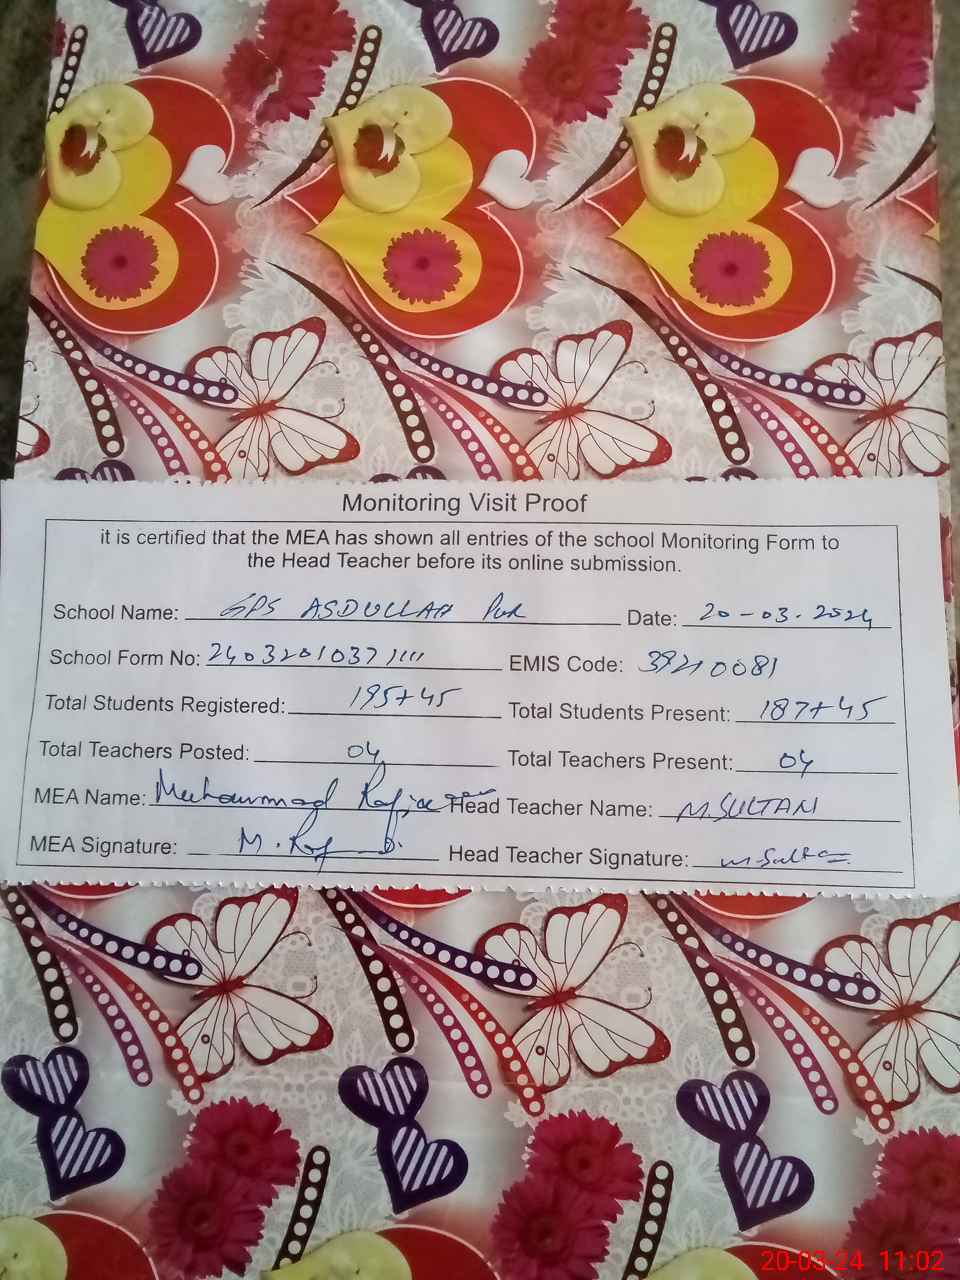 Monitoring Visit Proof
it is certified that the MEA has shown all entries of the school Monitoring Form to
the Head Teacher before its online submission.
School Name: GPS ASDULLAH PUR Date: 20-03-2024
School Form No: 24032010371111 EMIS Code: 39210081
Total Students Registered: 195+45 Total Students Present: 187+45
Total Teachers Posted: 04 Total Teachers Present: 04
MEA Name: Muhammad Head Teacher Name: M.SULTAN
MEA Signature: M. Head Teacher Signature: M-Sultan
20-03-24 11:02